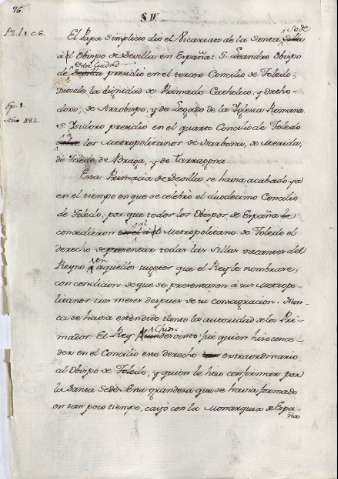 76.
S IV.
Sede
El Papa Simplicio dió el Vicariato de la Santa
al Obispo de Sevilla en España: S. Leandro Obispo
esta Ciudad
de presidió en el tercero Concilio de Toledo,
teniendo la dignidad de Primado Catholico,
de Arzobispo, y de Legado de la Iglesia Romana.
S. Isidoro presidió en el quarto Concilio de Toledo
los Metropolitanos de Narbona, de Merida,
de Toledo, de Braga, y de Tarragona.
Esta Primacia de Sevilla se havia acabado ya
en el tiempo en que se celebró el duodecimo Concilio
de Toledo, por que todos los Obispos de España
concedieron Metropolitano de Toledo el
derecho de presentar todas las Sillas vacantes del
Reyno aquellos sugetos que el Rey le nombrare,
con condicion de que se presentaran á su Metropo-
litano tres meses despues de su consagracion. Nun-
ca se havia extendido tanto la autoridad de los Pri-
mados. El Rey fue quien hizo conce-
der en el Concilio este derecho extraordinario
al Obispo de Toledo, y quien le hizo confirmar por
la Santa Sede. Esta grandeza que se havia formado
en tan poco tiempo, cayó con la Monarquia de Espa-
ña